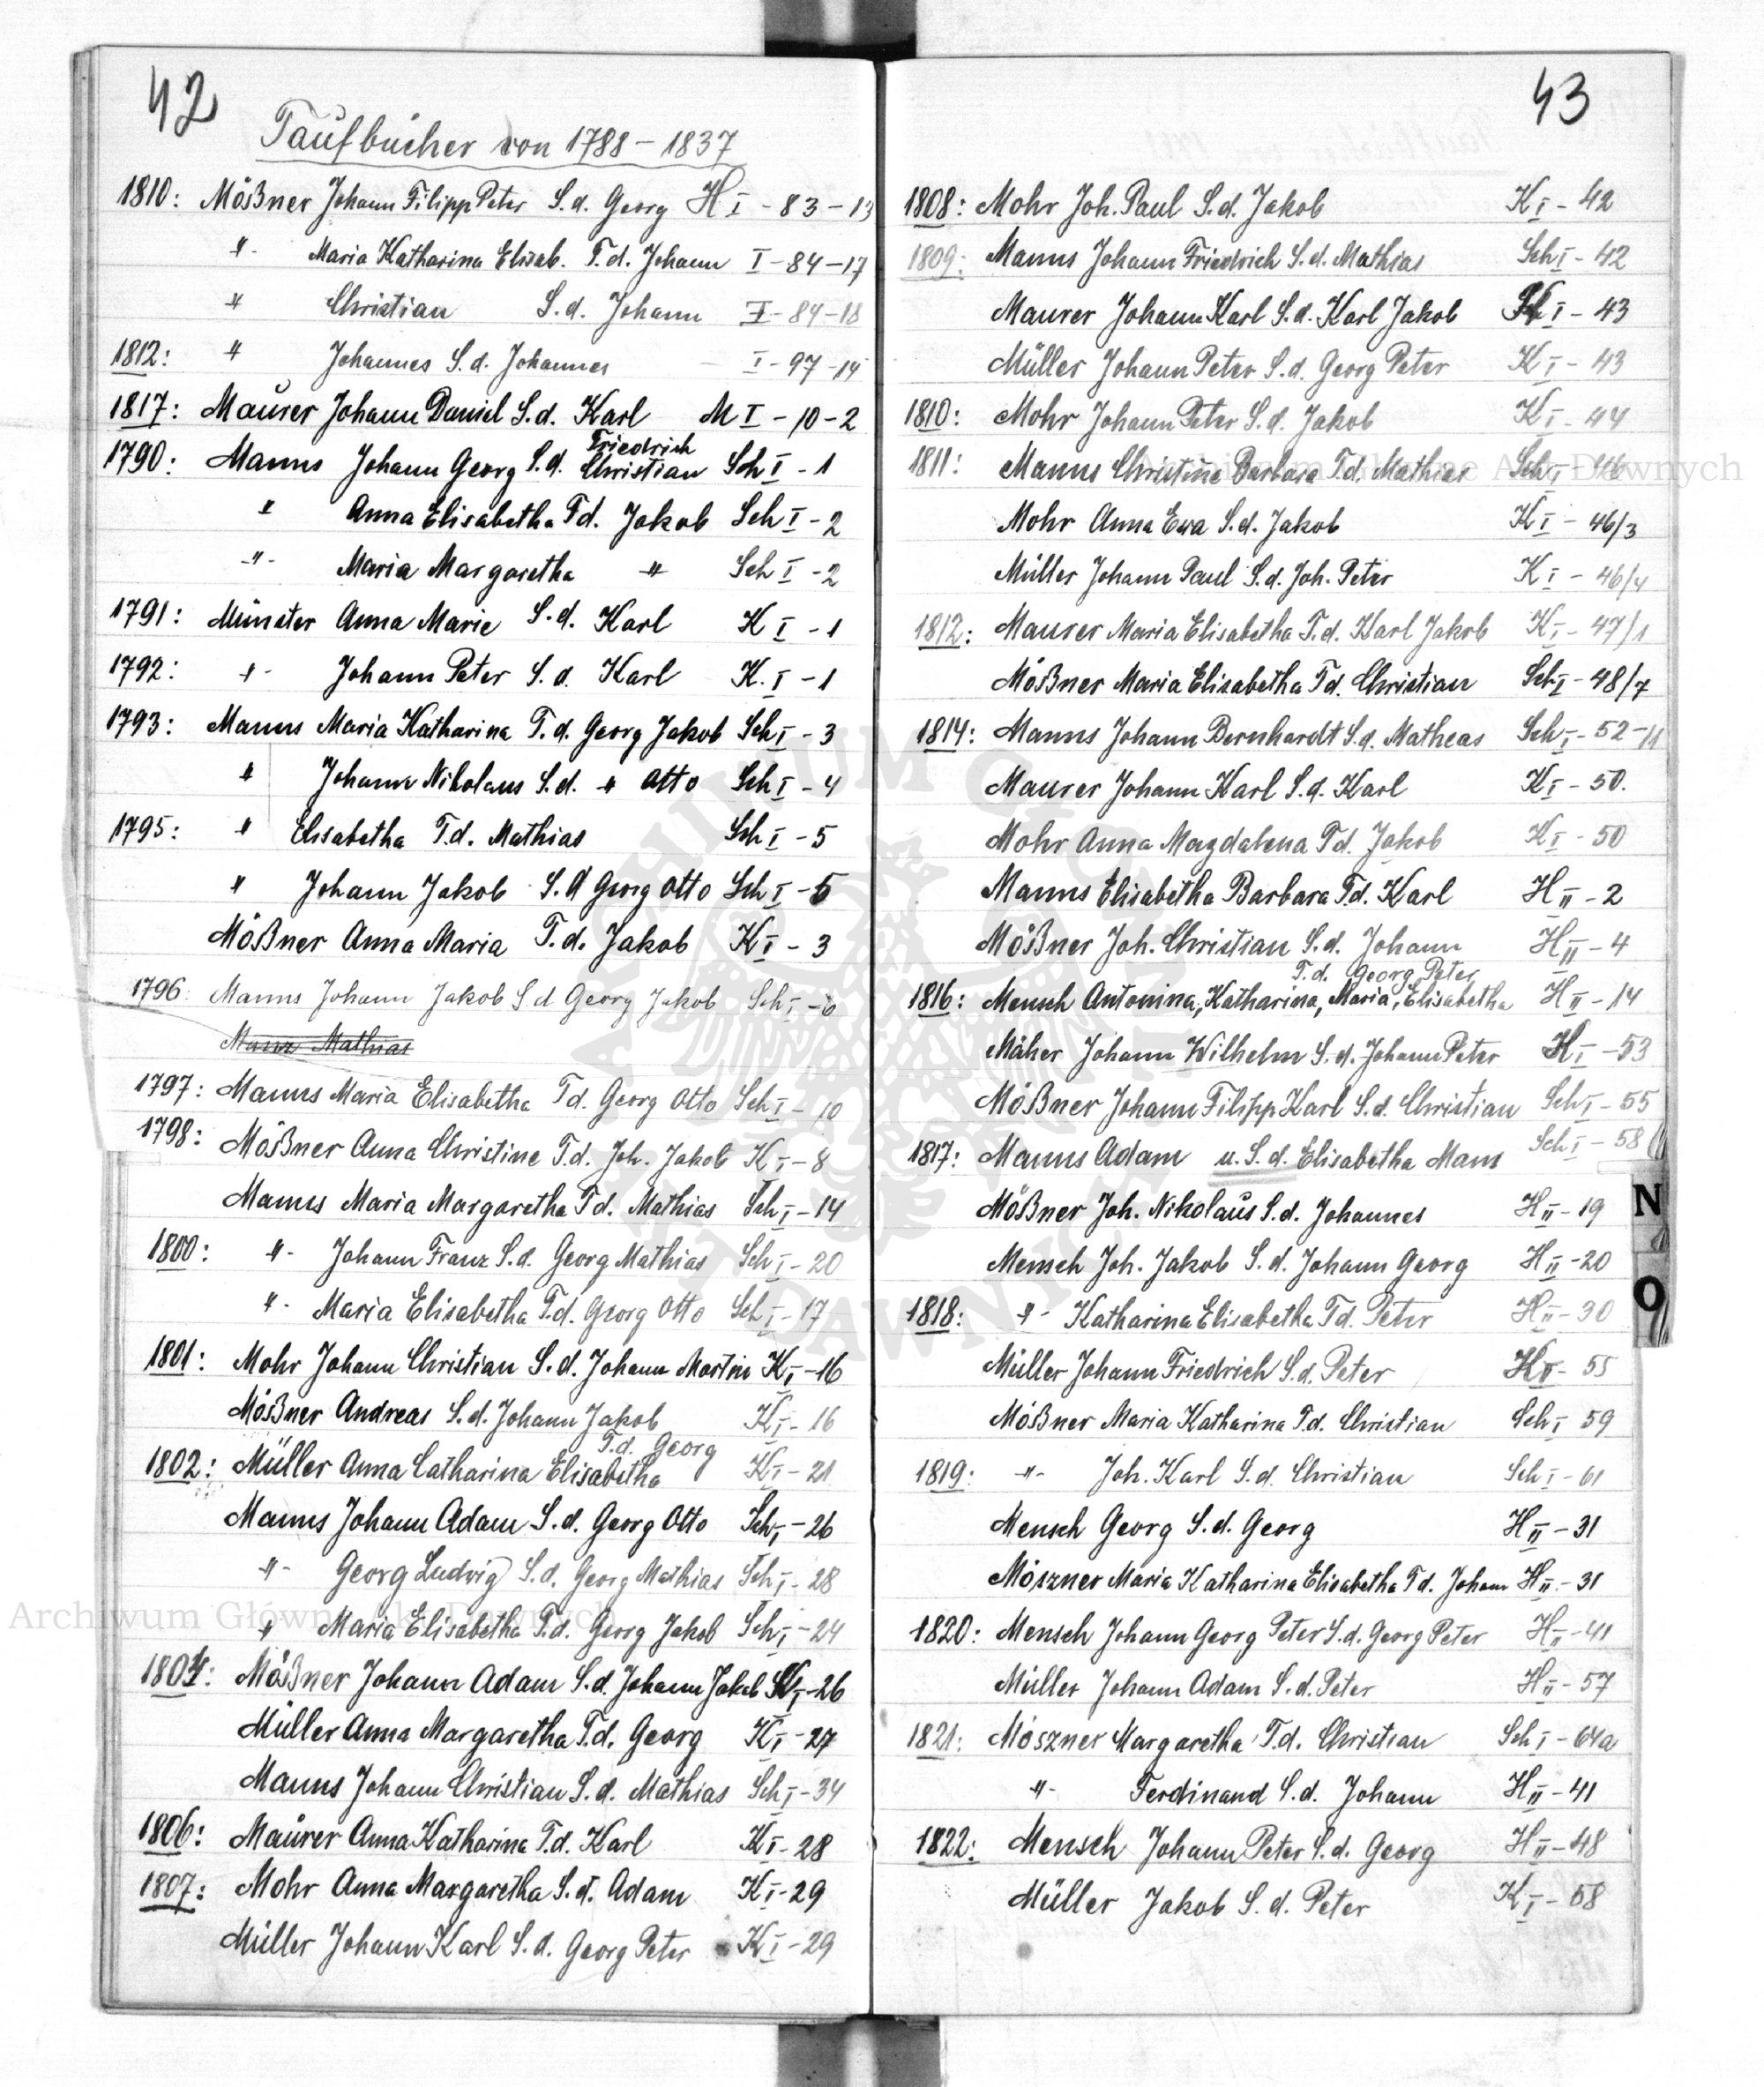 42
Taufbücher von 1788 – 1837
1810: Mößner Johann Filipp Peter S. d. Georg H I – 83 – 13
" Maria Katharina Elisab. T. d. Johann I – 84 – 17
" Christian S. d. Johann I – 84 – 18
1812: " Johannes S. d. Johannes I – 97 – 14
1817: Maurer Johann Daniel S. d. Karl M I – 10 – 2
Friedrich
1790: Manns Johann Georg S. d. Christian Sch I – 1
" Anna Elisabetha T d. Jakob Sch I – 2
" Maria Margaretha " Sch I – 2
1791: Münster Anna Marie S. d. Karl K I – 1
1792: " Johann Peter S. d. Karl K. I – 1
1793: Manns Maria Katharina T. d. Georg Jakob Sch I – 3
" Johann Nikolaus S. d. " Otto Sch I – 4
1795: " Elisabetha T. d. Mathias Sch I – 5
" Johann Jakob S. d Georg Otto Sch I – 5
Mößner Anna Maria T. d. Jakob K I – 3
1796: Manns Johann Jakob S d Georg Jakob Sch I – 6
Manz Mathias
1797: Manns Maria Elisabetha T d. Georg Otto Sch I – 10
1798: Mößner Anna Christine T. d. Joh. Jakob K I – 8
Manns Maria Margaretha T d. Mathias Sch I – 14
1800: " Johann Franz S. d. Georg Mathias Sch I – 20
" Maria Elisabetha T. d. Georg Otto Sch I – 17
1801: Mohr Johann Christian S. d. Johann Martin K I – 16
Mößner Andreas S. d. Johann Jakob K I – 16
T. d. Georg
1802: Müller Anna Catharina Elisabetha K I – 21
Manns Johann Adam S. d. Georg Otto Sch I – 26
" Georg Ludwig S. d. Georg Mathias Sch I – 28
" Maria Elisabetha T. d. Georg Jakob Sch I – 24
1804: Mößner Johann Adam S. d. Johann Jakob K I – 26
Müller Anna Margaretha T. d. Georg K I – 27
Manns Johann Christian S. d. Mathias Sch I – 34
1806: Maurer Anna Katharina T. d. Karl K I – 28
1807: Mohr Anna Margaretha S. d. Adam K I – 29
Müller Johann Karl S. d. Georg Peter K I – 29
43
1808: Mohr Joh. Paul S. d. Jakob K I – 42
1809: Manns Johann Friedrich S. d. Mathias Sch I – 42
Maurer Johann Karl S. d. Karl Jakob K I – 43
Müller Johann Peter S. d. Georg Peter K I – 43
1810: Mohr Johann Peter S. d. Jakob K I – 44
1811: Manns Christine Barbara T. d. Mathias Sch I – 46
Mohr Anna Ewa S. d. Jakob K I – 46/3
Müller Johann Paul S. d. Joh. Peter K I – 46/4
1812: Maurer Maria Elisabetha T. d. Karl Jakob K I – 47/1
Mößner Maria Elisabetha T d. Christian Sch I – 48/7
1814: Manns Johann Bernhardt S. d. Matheas Sch I – 52 – 11
Maurer Johann Karl S. d. Karl K I – 50.
Mohr Anna Magdalena T d. Jakob K I – 50
Manns Elisabetha Barbara T. d. Karl H II – 2
Mößner Joh. Christian S. d. Johann H II – 4
T. d. Georg Peter
1816: Mensch Antonina, Katharina, Maria, Elisabetha H II – 14
Mäher Johann Wilhelm S. d. Johann Peter H I – 53
Mößner Johann Filipp Karl S. d. Christian Sch I – 55
1817: Manns Adam u. S. d. Elisabetha Mans Sch I – 58
Mößner Joh. Nikolaus S. d. Johannes H II – 19
Mensch Joh. Jakob S. d. Johann Georg H II – 20
1818: " Katharina Elisabetha T d. Peter H II – 30
Müller Johann Friedrich S. d. Peter – 55
Mößner Maria Katharina T. d. Christian Sch I 59
1819: " Joh. Karl S. d. Christian Sch I – 61
Mensch Georg S. d. Georg H II – 31
Möszner Maria Katharina Elisabetha T d. Johann H II – 31
1820: Mensch Johann Georg Peter S. d. Georg Peter H II – 41
Müller Johann Adam S. d. Peter H II – 57
1821: Möszner Margaretha T. d. Christian Sch I – 64a
" Ferdinand S. d. Johann H II – 41
1822: Mensch Johann Peter S. d. Georg H II – 48
Müller Jakob S. d. Peter K I – 58
N
O
Archiwum Główne Akt Dawnych
Archiwum Główne Akt Dawnych
ARCHIWUM GŁÓWNE AKT DAWNYCH